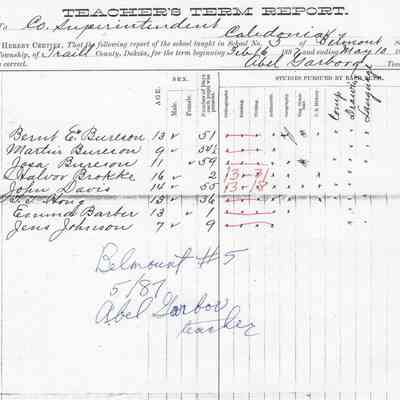 TEACHER'S TERM REPORT.
To Co. Superintendent Caledonia
HEREBY CERTIFY, That the following report of the school taught in School No. 5 of Belmont
Township, of Traill County, Dakota, for the term beginning Feb 16 188 and ending May 10
is correct. Abel Garborg
SEX. STUDIES PURSUED BY EACH
AGE. Male. Female. Number of Days each pupil was present. Orthography Reading Writing U.S. History Comp Drawing Language
Bernt E. Bureson 13 51
Martin Bureson 9 54½
Joga Bureson 11 59
Halvor Brokke 16 2
John Davis 14 55
Hong 15 36
Emma Barber 13 1
Jens Johnson 7 9
Belmount #5
5/87
Abel Garbor
teacher